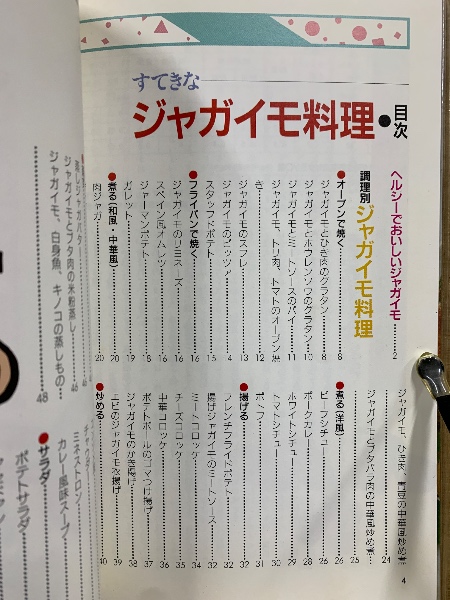 すてきな
ジャガイモ料理●目次
ヘルシーでおいしいジャガイモ……2
調理別 ジャガイモ料理
●オーブンで焼く……8
ジャガイモとひき肉のグラタン……8
ジャガイモとホウレンソウのグラタン……10
ジャガイモとミートソースのパイ……11
ジャガイモ、トリ肉、トマトのオーブン焼
き……12
ジャガイモのスフレ……13
ジャガイモのピッツァ……14
スタッフドポテト……15
●フライパンで焼く……16
ジャガイモのリヨネーズ……16
スペイン風オムレツ……
ジャーマンポテト……18
ガレット……19
●煮る(和風・中華風)……20
肉ジャガ……20
ジャガイモ、ひき肉、青豆の中華風炒め煮
……24
ジャガイモとブタバラ肉の中華風炒め煮……25
●煮る(洋風)……26
ビーフシチュー……26
ポークカレー……28
ホワイトシチュー……29
トマトシチュー……30
ポトフ……31
●揚げる……32
フレンチフライドポテト……32
揚げジャガイモのミートソース……32
ミートコロッケ……34
チーズコロッケ……35
中華コロッケ……36
ポテトボールのゴマつけ揚げ……37
ジャガイモのかき揚げ……38
エビのジャガイモ衣揚げ……39
●炒める……40
4
蒸しジャガバター……46
ジャガイモとブタ肉の米粉蒸し……46
ジャガイモ、白身魚、キノコの蒸しもの……48
チャウダー
ミネストローネ
カレー風味スープ
●サラダ
ポテトサラダ